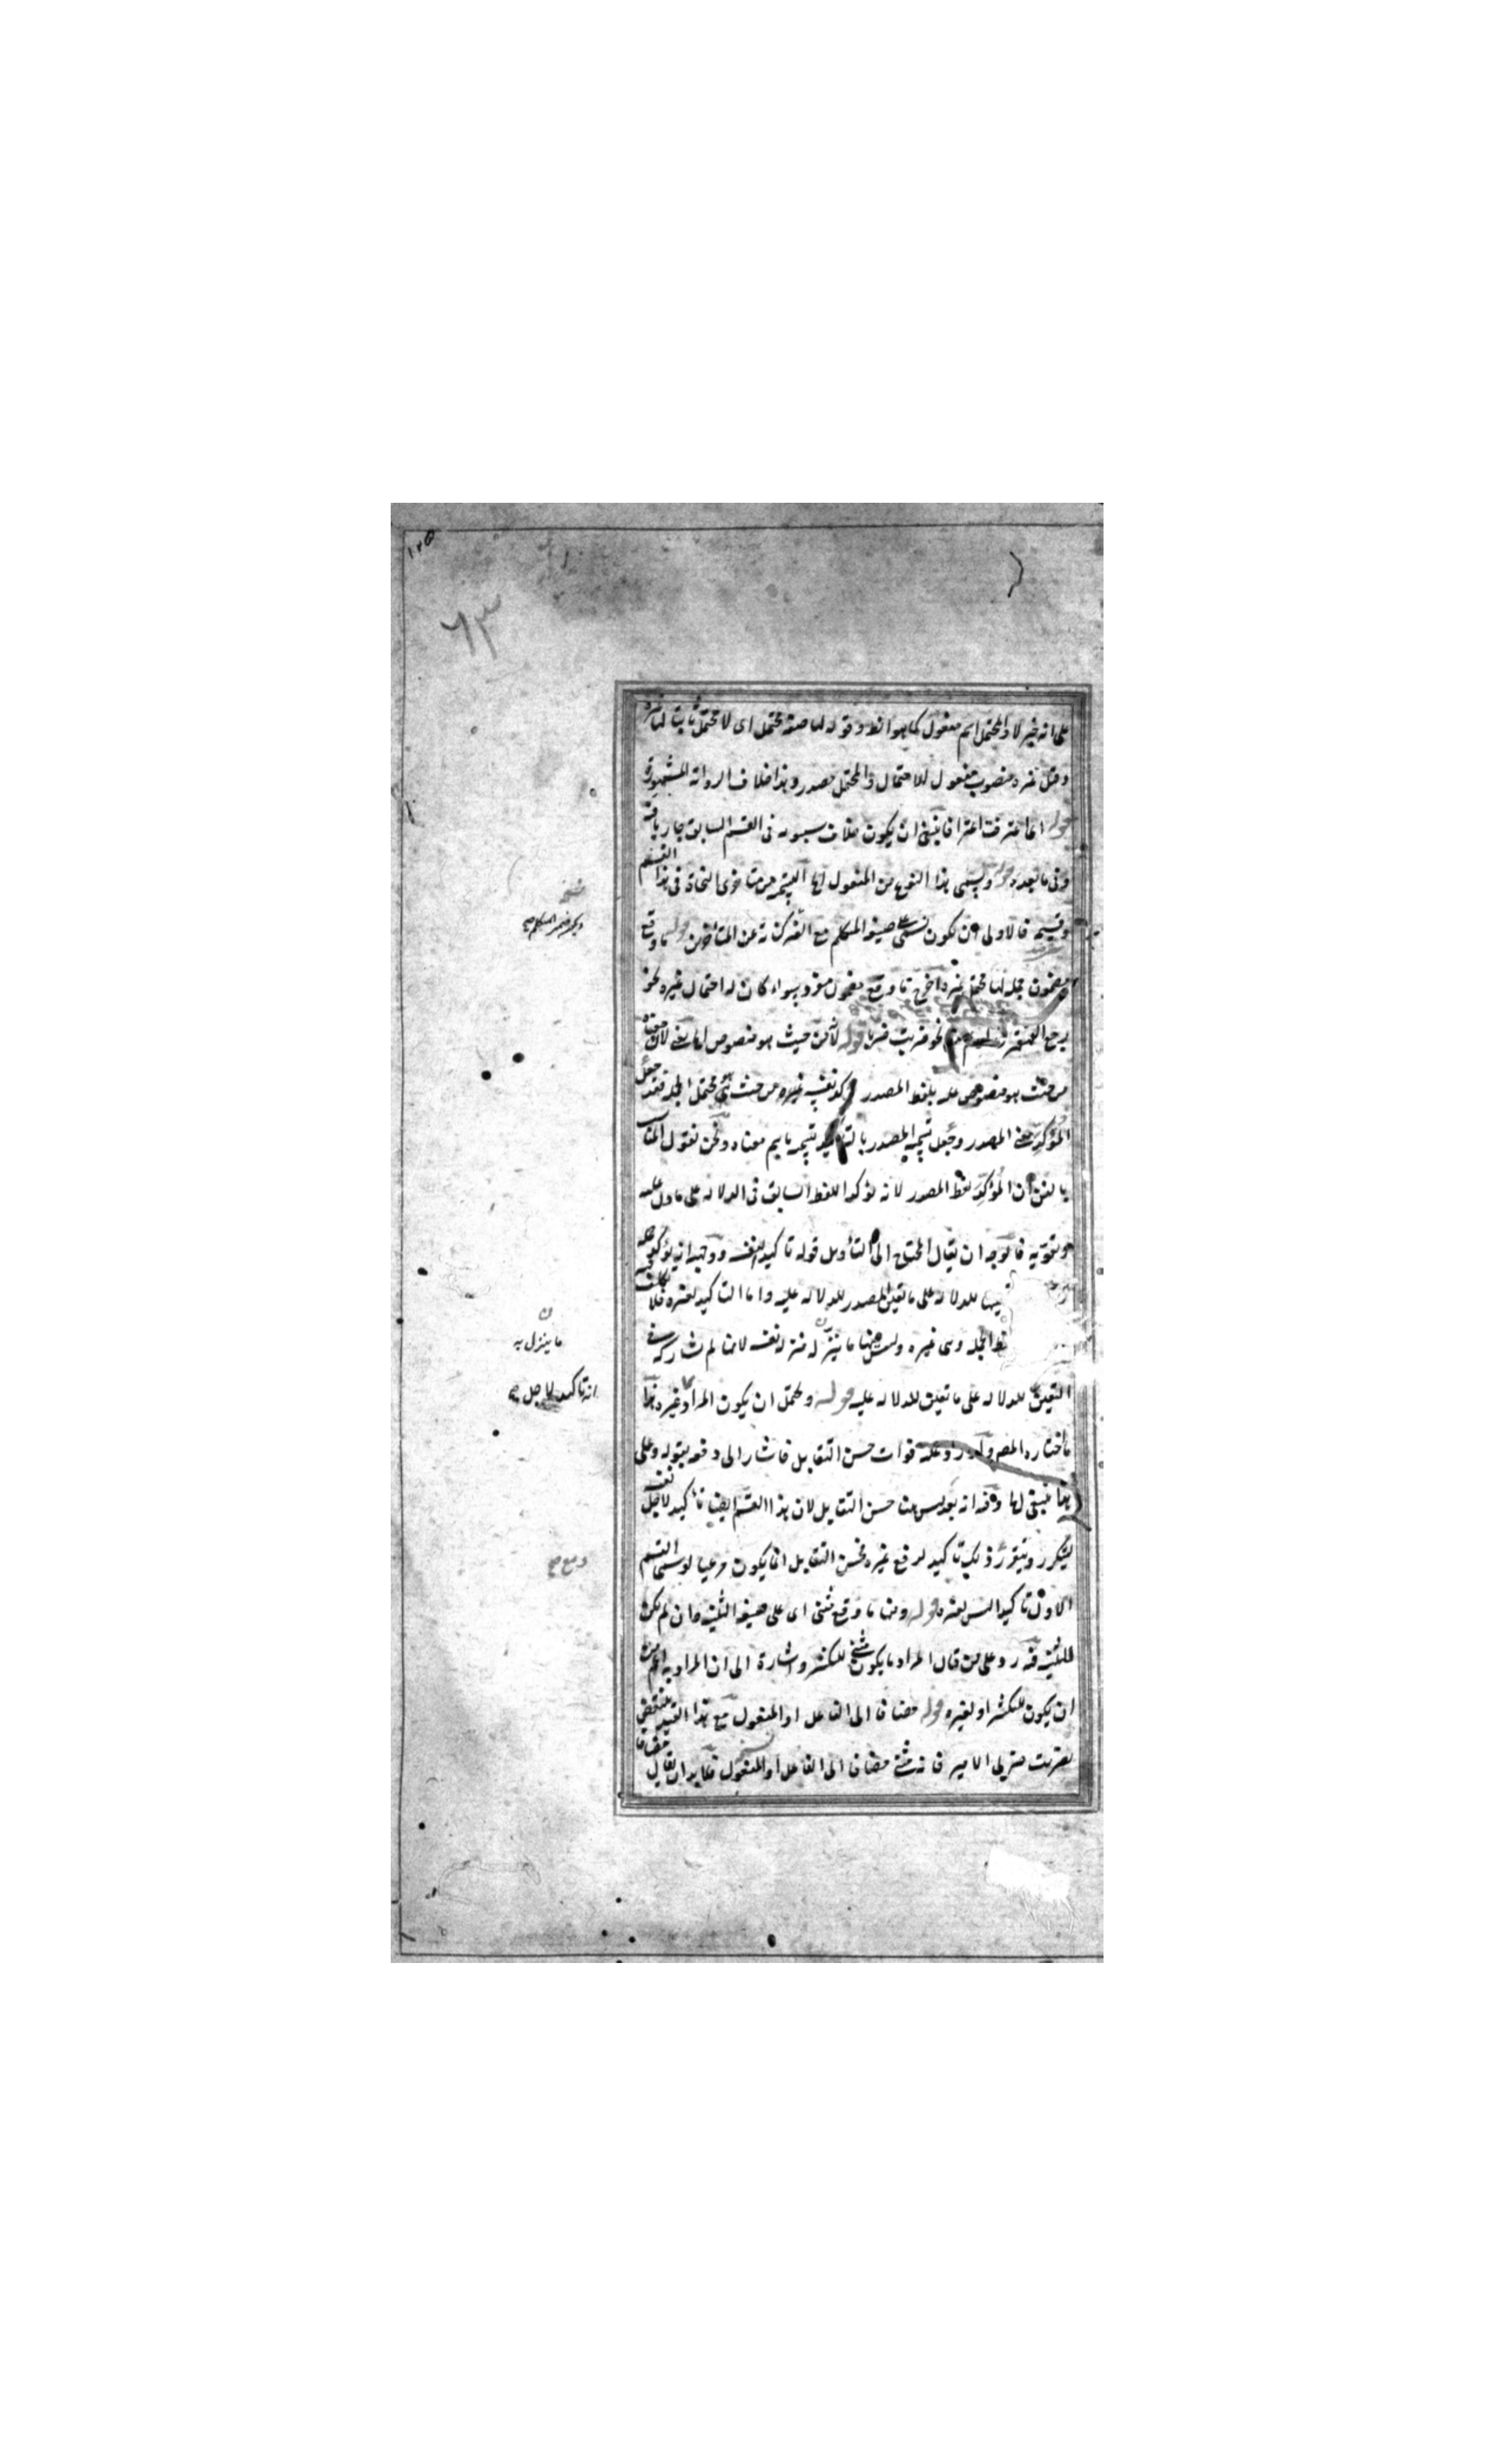 ١٢٥
٦٣
على انه خبر لا والمحتمل اسم مفعول كما هو الظ وقوله لها صفة محتمل اى لا محتمل ثابت لها غيره
وقيل غيره منصوب مفعول للاحتمال والمحتمل مصدر وهذا خلاف الرواية المشهورة
قوله اى اعترفت اعترافا ينبغى ان يكون خلاف سيبويه فى القسم السابق جاريا فيه
وفى ما بعده قوله ويسمى هذا النوع من المفعول اها التسمية من متاخرى النحاة فى هذا القسم
وقسيمه فالاولى ان يكون نسمى على صيغة المتكلم مع الغير كناية عن المتأخرين قوله ما وقع
مضمون جملة لها محتمل غيره اخرج ما وقع مضمون مفرد سواء كان له احتمال غيره نحو
رجع القهقرى نحو ضربت ضربا قوله لأنه من حيث هو منصوص اها يعنى لان معناه
من حيث هو منصوص عليه بلفظ المصدر يؤكد نفسه غيره من حيث هو محتمل الجملة فقد جعل
المؤكد معنى المصدر وجعل تسمية المصدر بالتاكيد تسمية باسم معناه ونحن نقول المناسب
بالفن ان المؤكد لفظ المصدر لانه يؤكد اللفظ السابق فى الدلالة على ما دل عليه
ويقويه فالوجه ان يقال المحتاج الى التأويل قوله تاكيد لنفسه ووجهه انه يؤكد جملة
فيها للدلالة على ما تعين المصدر للدلالة عليه واما التاكيد لغيره فلا تكلف فيه
الجملة وهى غيره وليس ههنا ما ينزله منزلة نفسه لانها لم تشاركه فى
التعين للدلالة على ما تعين للدلالة عليه قوله ويحتمل ان يكون المراد غيره هذا
ما اختاره المصـ ورد عليه فوات حسن التقابل فاشار الى دفعه بقوله وعلى
هذا ينبغى اها وفيه انه بعد ليس هنا حسن التقابل لان هذا القسم ايضا تأكيد لاجل نفسه
ليتكرر ويتقرر وذلك تأكيد لرفع غيره فحسن التقابل انما يكون مرعيا لو سمى القسم
الاول تأكيدا ليس لغيره قوله ومنها ما وقع مثنى اى على صيغة التثنية وان لم يكن
للتثنية فيه رد على من قال المراد ما يكون مثنى للتكثير واشارة الى ان المراد به اعم من
ان يكون للتكثير او لغيره قوله مضافا الى الفاعل او المفعول مع هذا القيد ينتقض
بضربت ضربى الامير فانه مثنى مضاف الى الفاعل او المفعول فلابد ان يقال مضافا
ما ينزل به
انه تاكيد لاجل صح